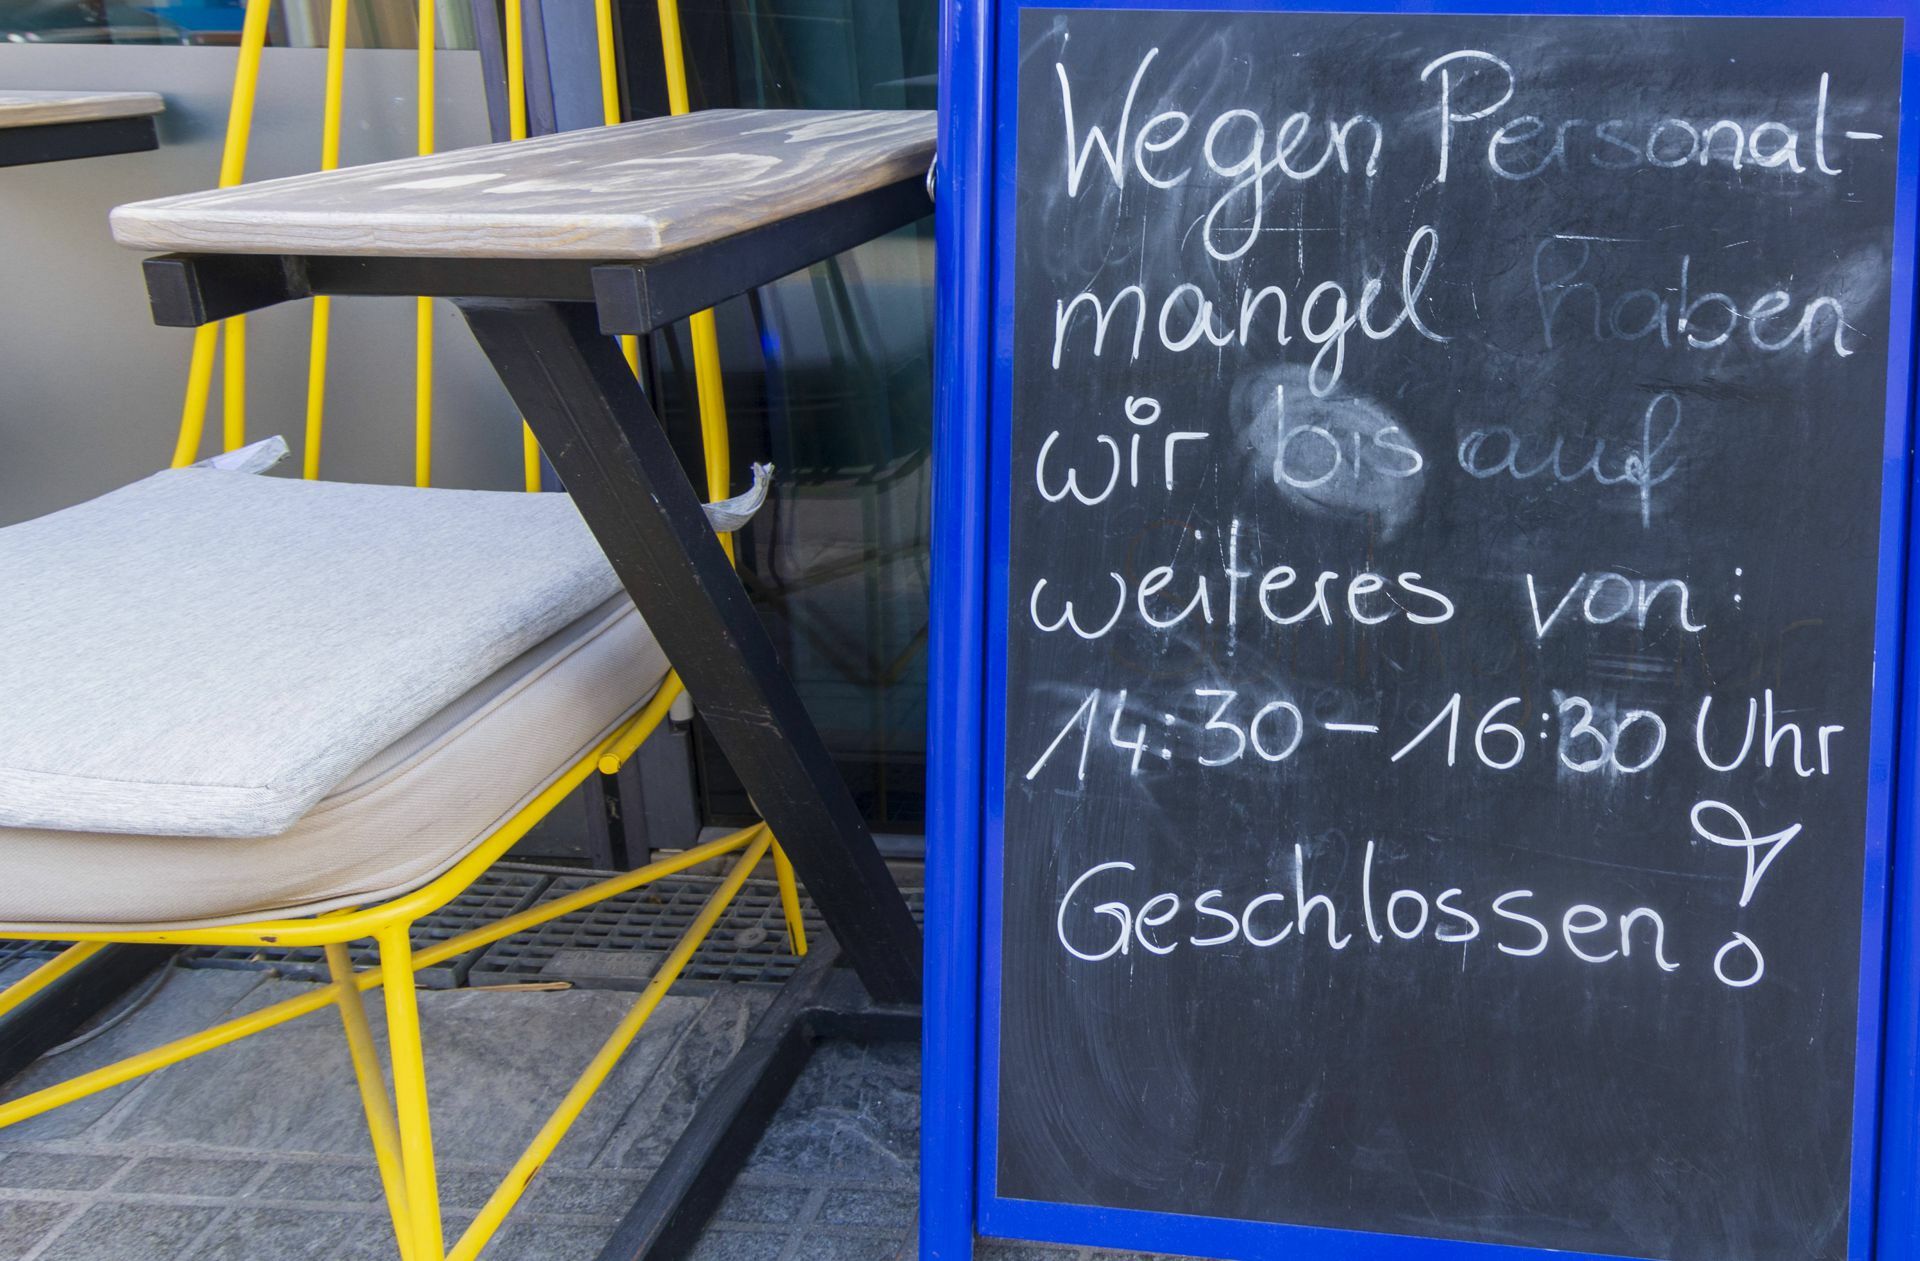 Wegen Personal-
mangel haben
wir bis auf
weiteres von:
14:30 - 16:30 Uhr
Geschlossen!